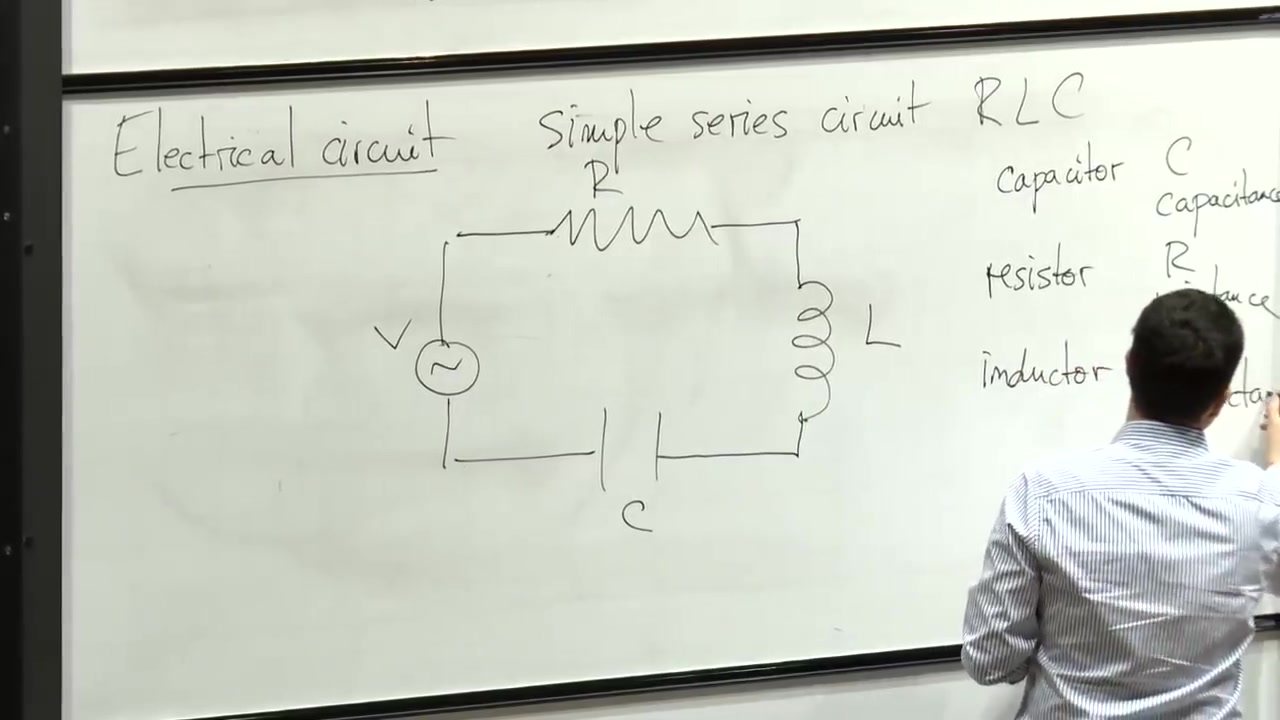 Electrical circuit simple series circuit RLC
R
V
L
C
capacitor C
capacitance
resistor R
inductor